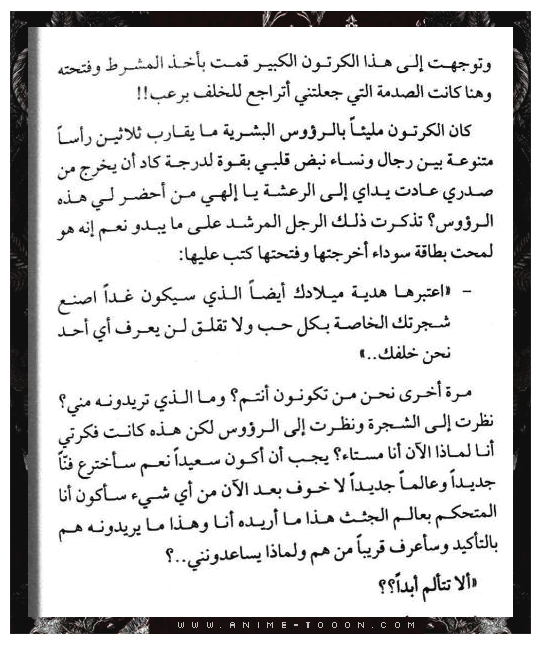 وتوجهت إلى هذا الكرتون الكبير قمت بأخذ المشرط وفتحته
وهنا كانت الصدمة التي جعلتني أتراجع للخلف برعب!!
كان الكرتون مليئاً بالرؤوس البشرية ما يقارب ثلاثين رأساً
متنوعة بين رجال ونساء نبض قلبي بقوة لدرجة كاد أن يخرج من
صدري عادت يداي إلى الرعشة يا إلهي من أحضر لي هذه
الرؤوس؟ تذكرت ذلك الرجل المرشد على ما يبدو نعم إنه هو
لمحت بطاقة سوداء أخرجتها وفتحتها كتب عليها:
– «اعتبرها هدية ميلادك أيضاً الذي سيكون غداً اصنع
شجرتك الخاصة بكل حب ولا تقلق لن يعرف أي أحد
نحن خلفك..»
مرة أخرى نحن من تكونون أنتم؟ وما الذي تريدونه مني؟
نظرت إلى الشجرة ونظرت إلى الرؤوس لكن هذه كانت فكرتي
أنا لماذا الآن أنا مستاء؟ يجب أن أكون سعيداً نعم سأخترع فنّاً
جديداً وعالماً جديداً لا خوف بعد الآن من أي شيء سأكون أنا
المتحكم بعالم الجثث هذا ما أريده أنا وهذا ما يريدونه هم
بالتأكيد وسأعرف قريباً من هم ولماذا يساعدونني..؟
«ألا تتألم أبداً؟؟
WWW.ANIME-TOOON.COM